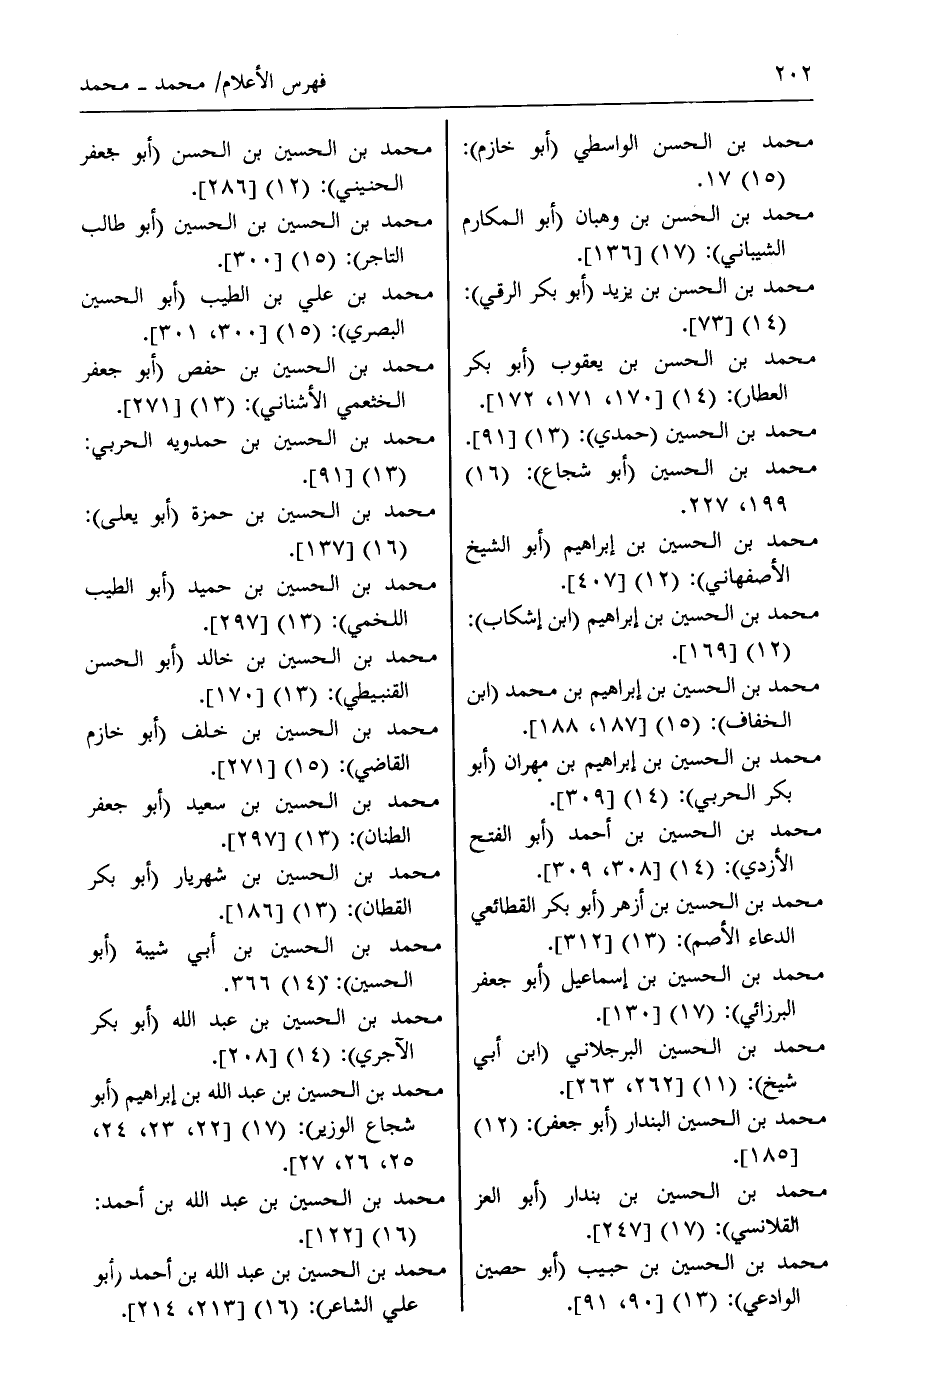 ٢٠٢
فهرس الأعلام/ محمد ـ محمد
محمد بن الحسن الواسطي (أبو خازم):
(١٥) ١٧.
محمد بن الحسن بن وهبان (أبو المكارم
الشيباني): (١٧) [١٣٦].
محمد بن الحسن بن يزيد (أبو بكر الرقي):
(١٤) [٧٣].
محمد بن الحسن بن يعقوب (أبو بكر
العطار): (١٤) [١٧٠، ١٧١، ١٧٢].
محمد بن الحسين (حمدي): (١٣) [٩١].
محمد بن الحسين (أبو شجاع): (١٦)
١٩٩، ٢٢٧.
محمد بن الحسين بن إبراهيم (أبو الشيخ
الأصفهاني): (١٢) [٤٠٧].
محمد بن الحسين بن إبراهيم (ابن إشكاب):
(١٢) [١٦٩].
محمد بن الحسين بن إبراهيم بن محمد (ابن
الخفاف): (١٥) [١٨٧، ١٨٨].
محمد بن الحسين بن إبراهيم بن مهران (أبو
بكر الحربي): (١٤) [٣٠٩].
محمد بن الحسين بن أحمد (أبو الفتح
الأزدي): (١٤) [٣٠٨، ٣٠٩].
محمد بن الحسين بن أزهر (أبو بكر القطائعي
الدعاء الأصم): (١٣) [٣١٢].
محمد بن الحسين بن إسماعيل (أبو جعفر
البرزائي): (١٧) [١٣٠].
محمد بن الحسين البرجلاني (ابن أبي
شيخ): (١١) [٢٦٢، ٢٦٣].
محمد بن الحسين البندار (أبو جعفر): (١٢)
[١٨٥].
محمد بن الحسين بن بندار (أبو العز
القلانسي): (١٧) [٢٤٧].
محمد بن الحسين بن حبيب (أبو حصين
الوادعي): (١٣) [٩٠، ٩١].
محمد بن الحسين بن الحسن (أبو جعفر
الحنيني): (١٢) [٢٨٦].
محمد بن الحسين بن الحسين (أبو طالب
التاجر): (١٥) [٣٠٠].
محمد بن علي بن الطيب (أبو الحسين
البصري): (١٥) [٣٠٠، ٣٠١].
محمد بن الحسين بن حفص (أبو جعفر
الخثعمي الأشناني): (١٣) [٢٧١].
محمد بن الحسين بن حمدويه الحربي:
(١٣) [٩١].
محمد بن الحسين بن حمزة (أبو يعلى):
(١٦) [١٣٧].
محمد بن الحسين بن حميد (أبو الطيب
اللخمي): (١٣) [٢٩٧].
محمد بن الحسين بن خالد (أبو الحسن
القنبيطي): (١٣) [١٧٠].
محمد بن الحسين بن خلف (أبو خازم
القاضي): (١٥) [٢٧١].
محمد بن الحسين بن سعيد (أبو جعفر
الطنان): (١٣) [٢٩٧].
محمد بن الحسين بن شهريار (أبو بكر
القطان): (١٣) [١٨٦].
محمد بن الحسين بن أبي شيبة (أبو
الحسين): (١٤) ٣٦٦.
محمد بن الحسين بن عبد الله (أبو بكر
الآجري): (١٤) [٢٠٨].
محمد بن الحسين بن عبد الله بن إبراهيم (أبو
شجاع الوزير): (١٧) [٢٢، ٢٣، ٢٤،
٢٥، ٢٦، ٢٧].
محمد بن الحسين بن عبد الله بن أحمد:
(١٦) [١٢٢].
محمد بن الحسين بن عبد الله بن أحمد (أبو
علي الشاعر): (١٦) [٢١٣، ٢١٤].